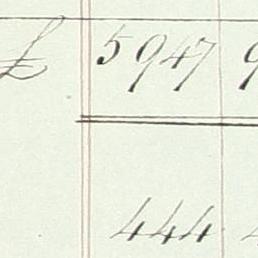 £ 5947 9
444